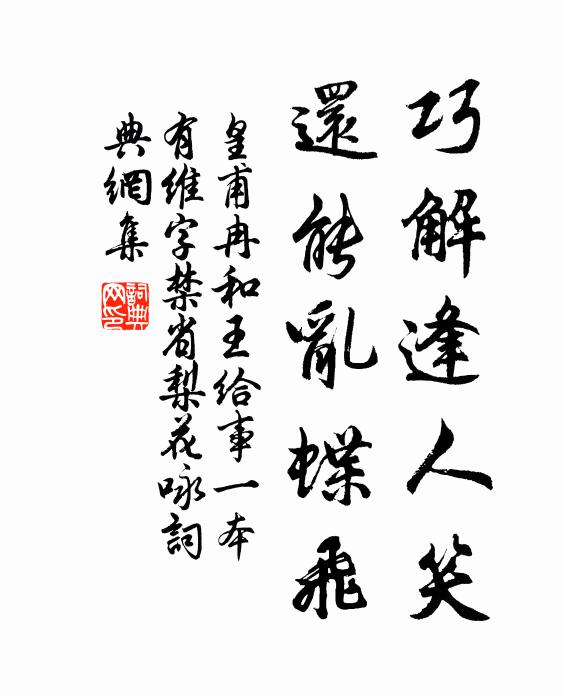 巧解逢人笑
還能亂蝶飛
皇甫冉和王給事一本
有維字禁省梨花咏詞
典網集
詞典
网印